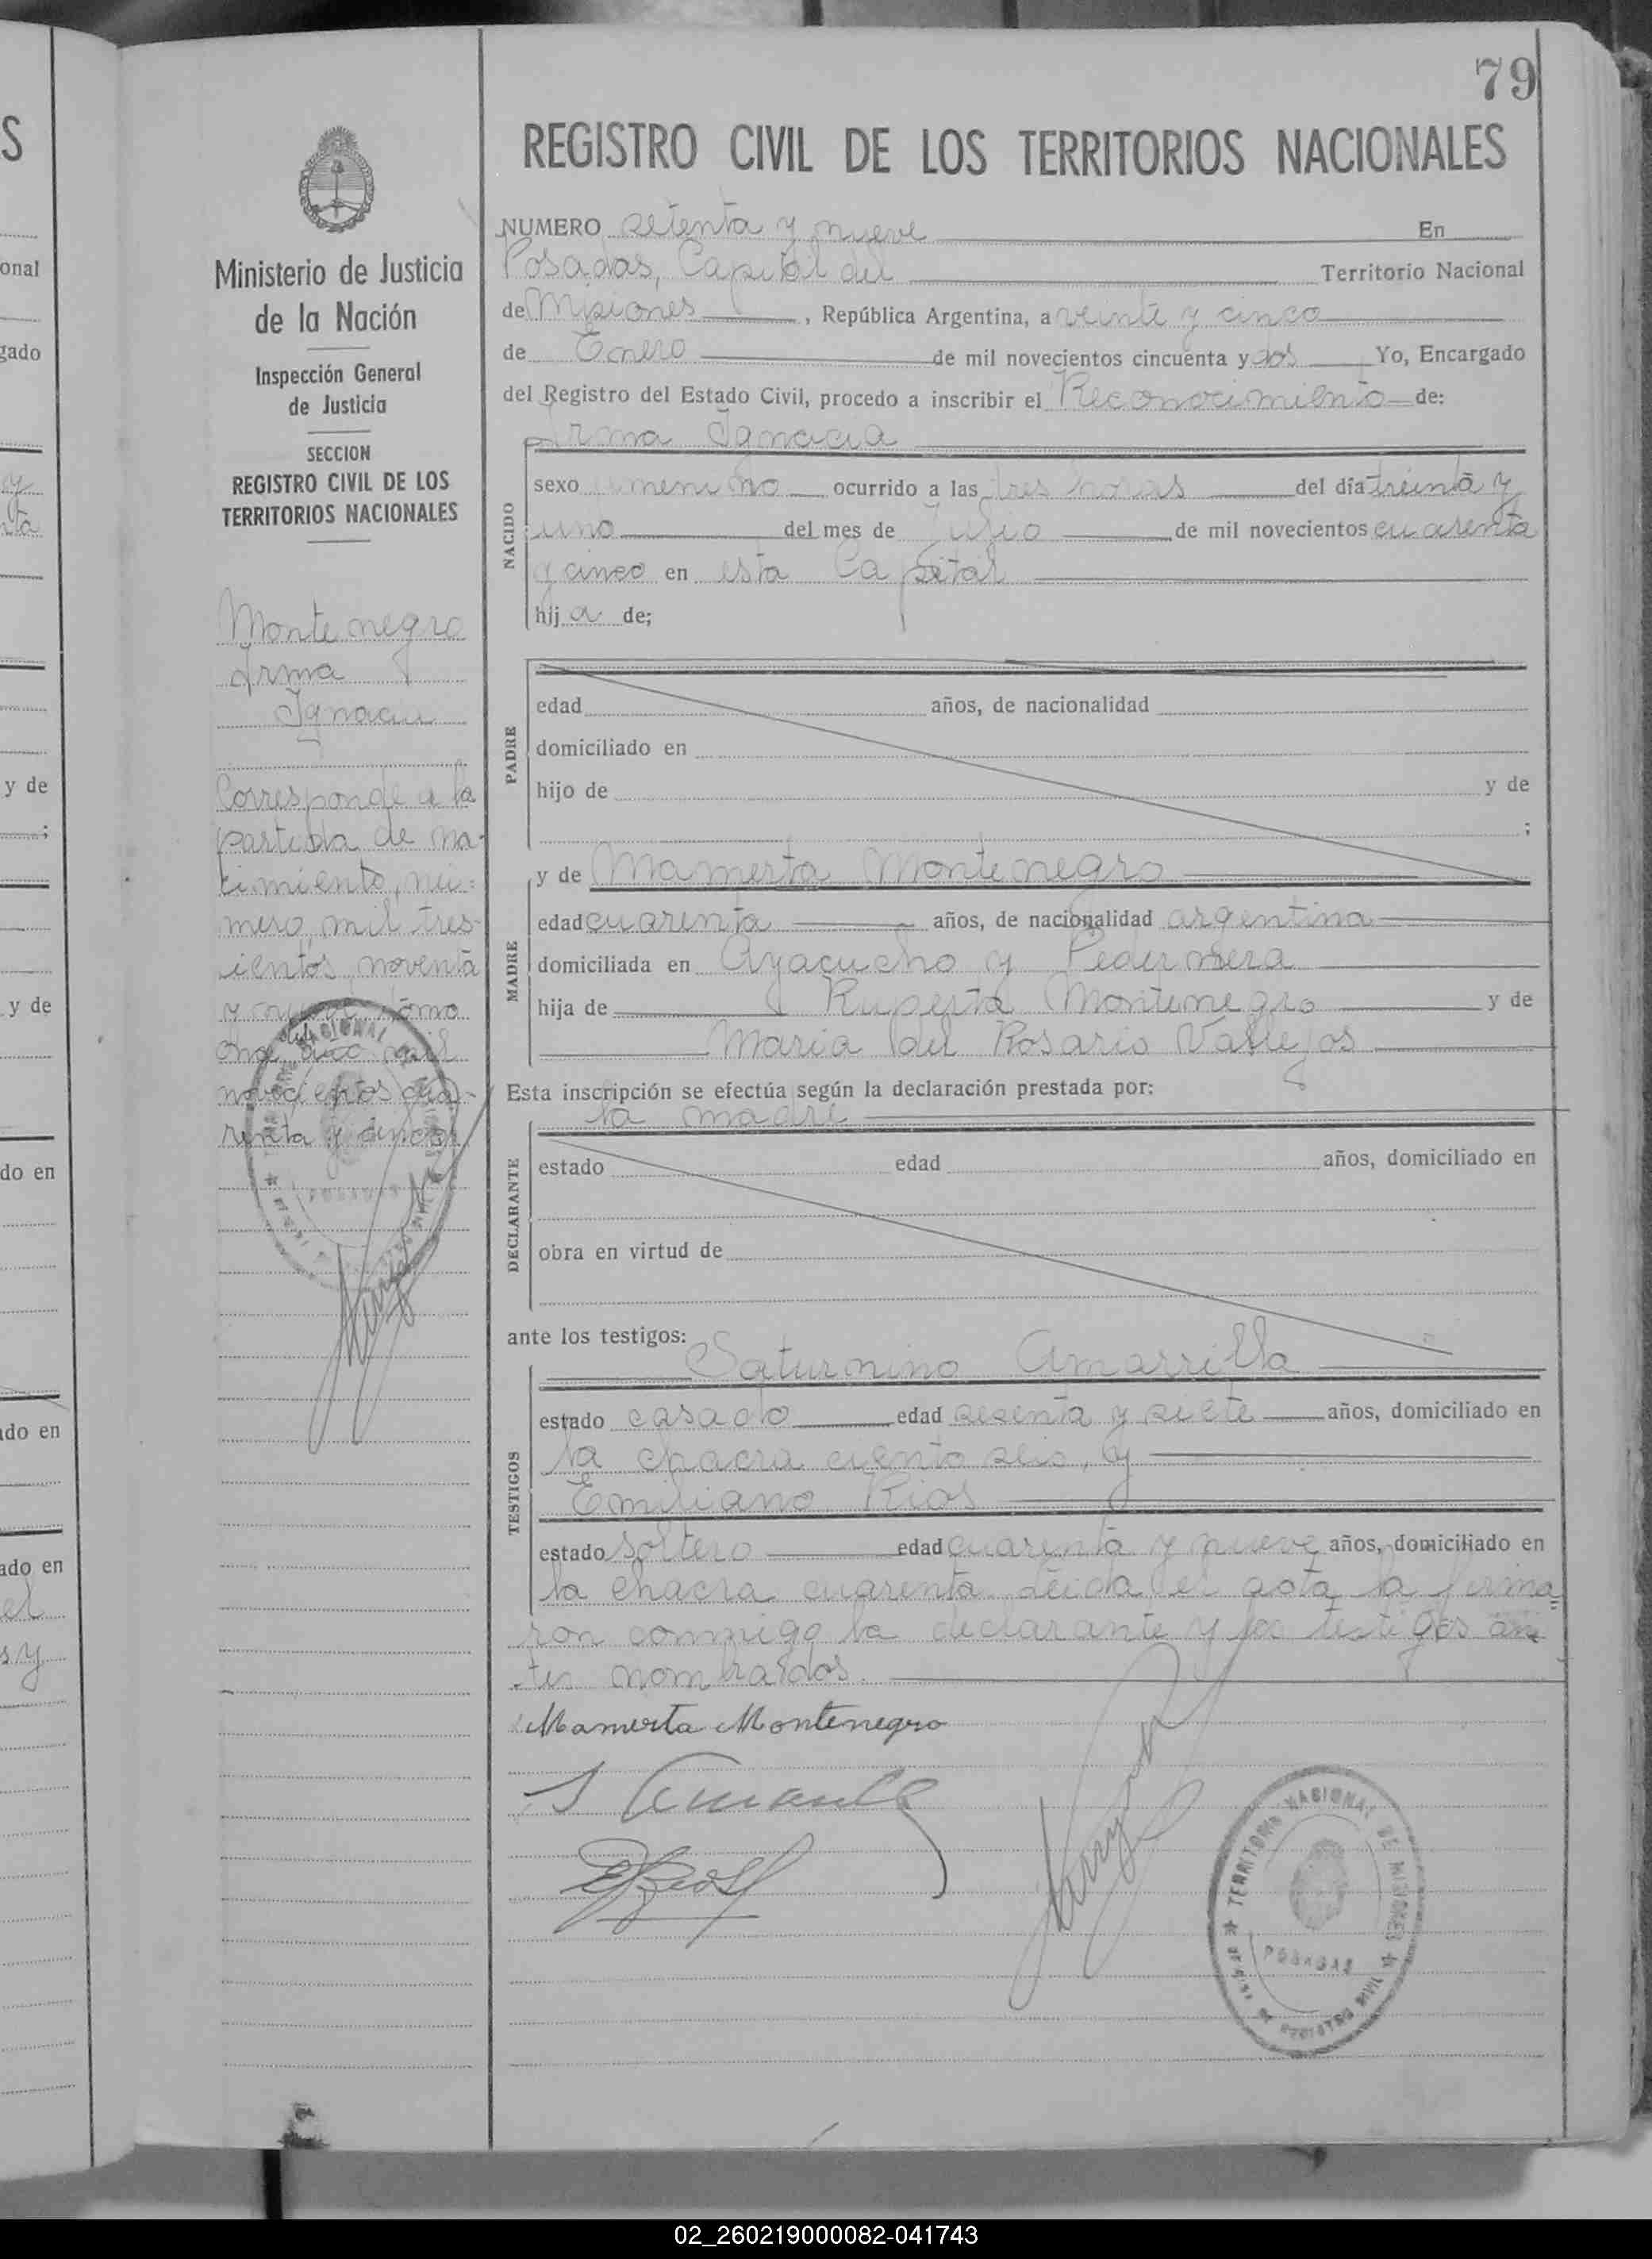 79
REGISTRO CIVIL DE LOS TERRITORIOS NACIONALES
Ministerio de Justicia
de la Nación
Inspección General
de Justicia
SECCION
REGISTRO CIVIL DE LOS
TERRITORIOS NACIONALES
Montenegro
Irma
Ignacia
Corresponde a la
partida de na-
cimiento, nú-
mero mil tres-
cientos noventa
y tomo
mil
novecientos cua-
renta y cinco
NUMERO setenta y nueve En
Posadas, Capital del Territorio Nacional
de Misiones, República Argentina, a veinte y cinco
de Enero de mil novecientos cincuenta y dos Yo, Encargado
del Registro del Estado Civil, procedo a inscribir el Reconocimiento de:
Irma Ignacia
NACIDO
sexo femenino ocurrido a las tres horas del día treinta y
uno del mes de Julio de mil novecientos cuarenta
y cinco en esta Capital
hija de;
PADRE
edad años, de nacionalidad
domiciliado en
hijo de y de
;
MADRE
y de Mamerta Montenegro
edad cuarenta años, de nacionalidad argentina
domiciliada en Ayacucho y Pedernera
hija de Ruperta Montenegro y de
Maria del Rosario Vallejos
Esta inscripción se efectúa según la declaración prestada por:
la madre
DECLARANTE
estado edad años, domiciliado en
obra en virtud de
ante los testigos:
Saturnino Amarrilla
TESTIGOS
estado casado edad sesenta y siete años, domiciliado en
la chacra ciento seis, y
Emiliano Rios
estado soltero edad cuarenta y nueve años, domiciliado en
la chacra cuarenta. Leida el acta la firma
ron conmigo la declarante y los testigos an
tes nombrados.
Mamerta Montenegro
TERRITORIO NACIONAL DE MISIONES
POSADAS
REGISTRO CIVIL
02_260219000082-041743